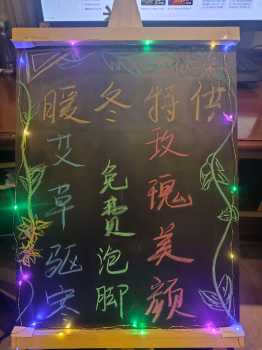 暖冬特供
艾草驱寒
免费泡脚
玫瑰美颜